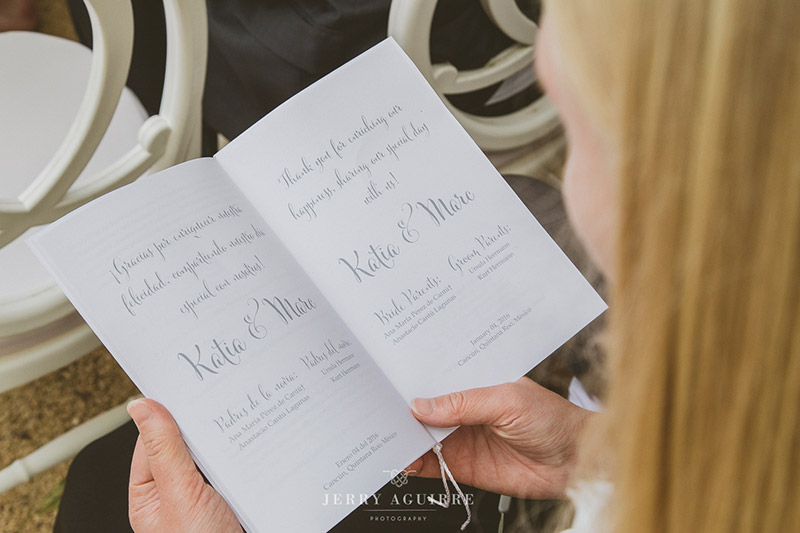 ¡Gracias por enriquecer nuestra
felicidad, compartiendo nuestro día
especial con nosotros!
Katia & Marc
Padres de la novia:
Ana María Pérez de Cantú
Anastacio Cantú Lagunas
Padres del novio:
Ursula Herrmann
Kurt Herrmann
Enero 04 del 2016
Cancún, Quintana Roo, México
Thank you for enriching our
happiness, sharing our special day
with us!
Katia & Marc
Bride Parents:
Ana María Pérez de Cantú
Anastacio Cantú Lagunas
Groom Parents:
Ursula Herrmann
Kurt Herrmann
January 04, 2016
Cancún, Quintana Roo, México
JERRY AGUIRRE
PHOTOGRAPHY